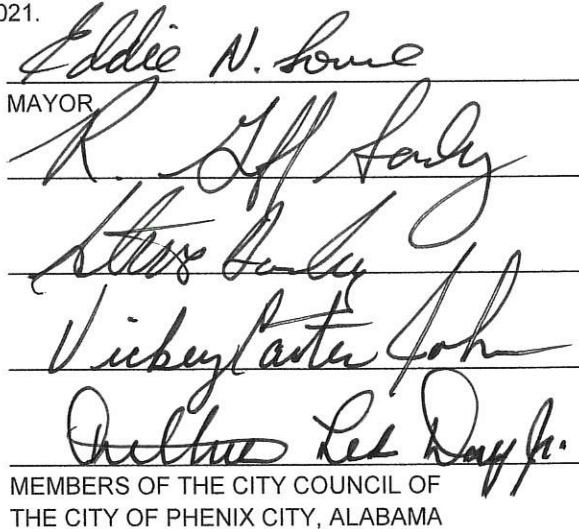 021.
Eddie N. Lowe
MAYOR
R.
Steve Bailey
Vickey Carter John
Lee Day Jr.
MEMBERS OF THE CITY COUNCIL OF
THE CITY OF PHENIX CITY, ALABAMA